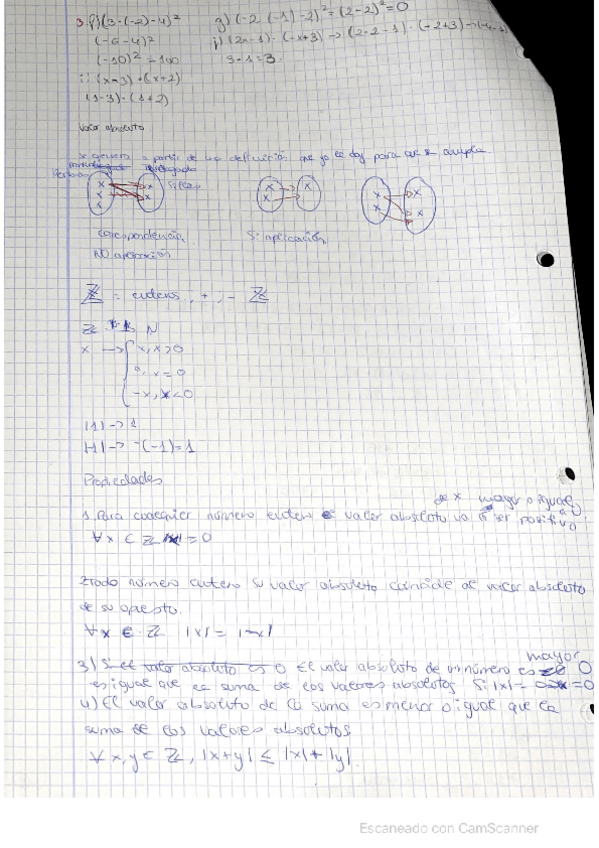 3. f) (3·(-2)-4)²   g) (-2·(-1)-2)² = (2-2)² = 0
(-6-4)²   j) (2x-1)·(-x+3) -> (2·2-1)·(-2+3) ->
(-10)² = 100   3·1=3.
i) (x-3)·(x+2)
(1-3)·(1+2)
Valor absoluto
a partir de una definición que yo te doy para que se cumpla
Correspondencia   Si aplicación
NO aplicación
ℤ = enteros ; + ; - ℤ
ℤ N
x -> { x, x>0
0, x=0
-x, x<0
|1| -> 1
|-1| -> -(-1)=1
Propiedades
de x mayor o igual
1. Para cualquier número entero valor absoluto va a ser positivo
∀x ∈ ℤ |x| = 0
2 todo número entero su valor absoluto coincide de valor absoluto
de su opuesto.
∀x ∈ ℤ |x| = |-x|
mayor
3) Si el valor absoluto es 0 El valor absoluto de un número es 0
es igual que la suma de los valores absolutos. Si |x| = =0
4) El valor absoluto de la suma es menor o igual que la
suma de los valores absolutos
∀x,y ∈ ℤ, |x+y| ≤ |x|+|y|.
Escaneado con CamScanner